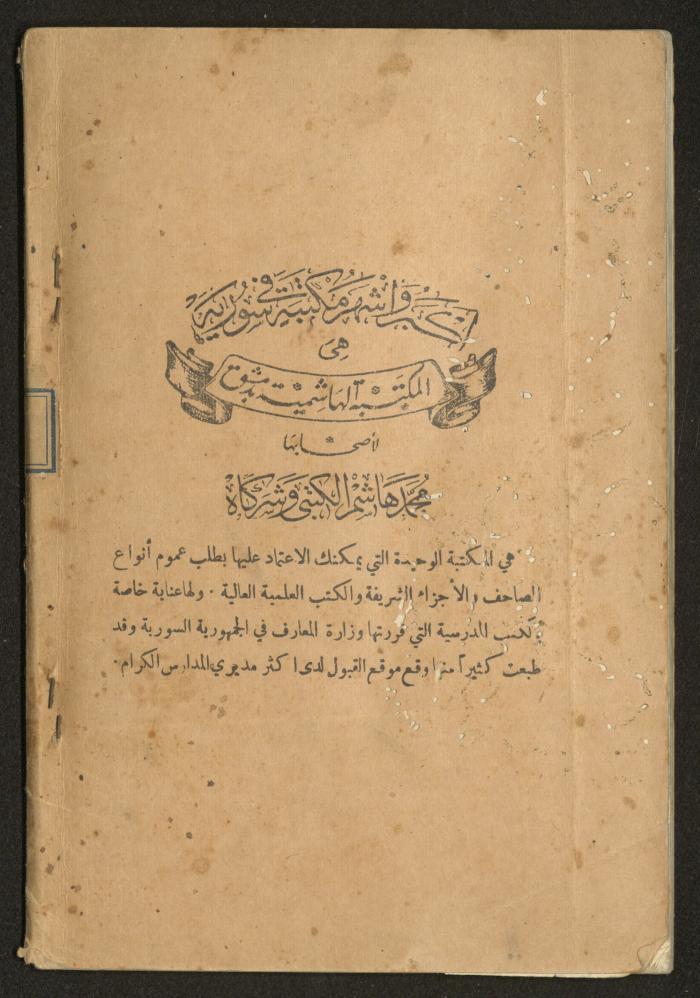 اكبر واشهر مكتبة في سورية
هي
المكتبة الهاشمية بدمشق
لأصحابها
محمد هاشم الكتبي وشركاه
هي المكتبة الوحيدة التي يمكنك الاعتماد عليها بطلب عموم أنواع
المصاحف والأجزاء الشريفة والكتب العلمية العالية . ولها عناية خاصة
بالكتب المدرسية التي قررتها وزارة المعارف في الجمهورية السورية وقد
طبعت كثيراً منها وقع موقع القبول لدى اكثر مديري المدارس الكرام .